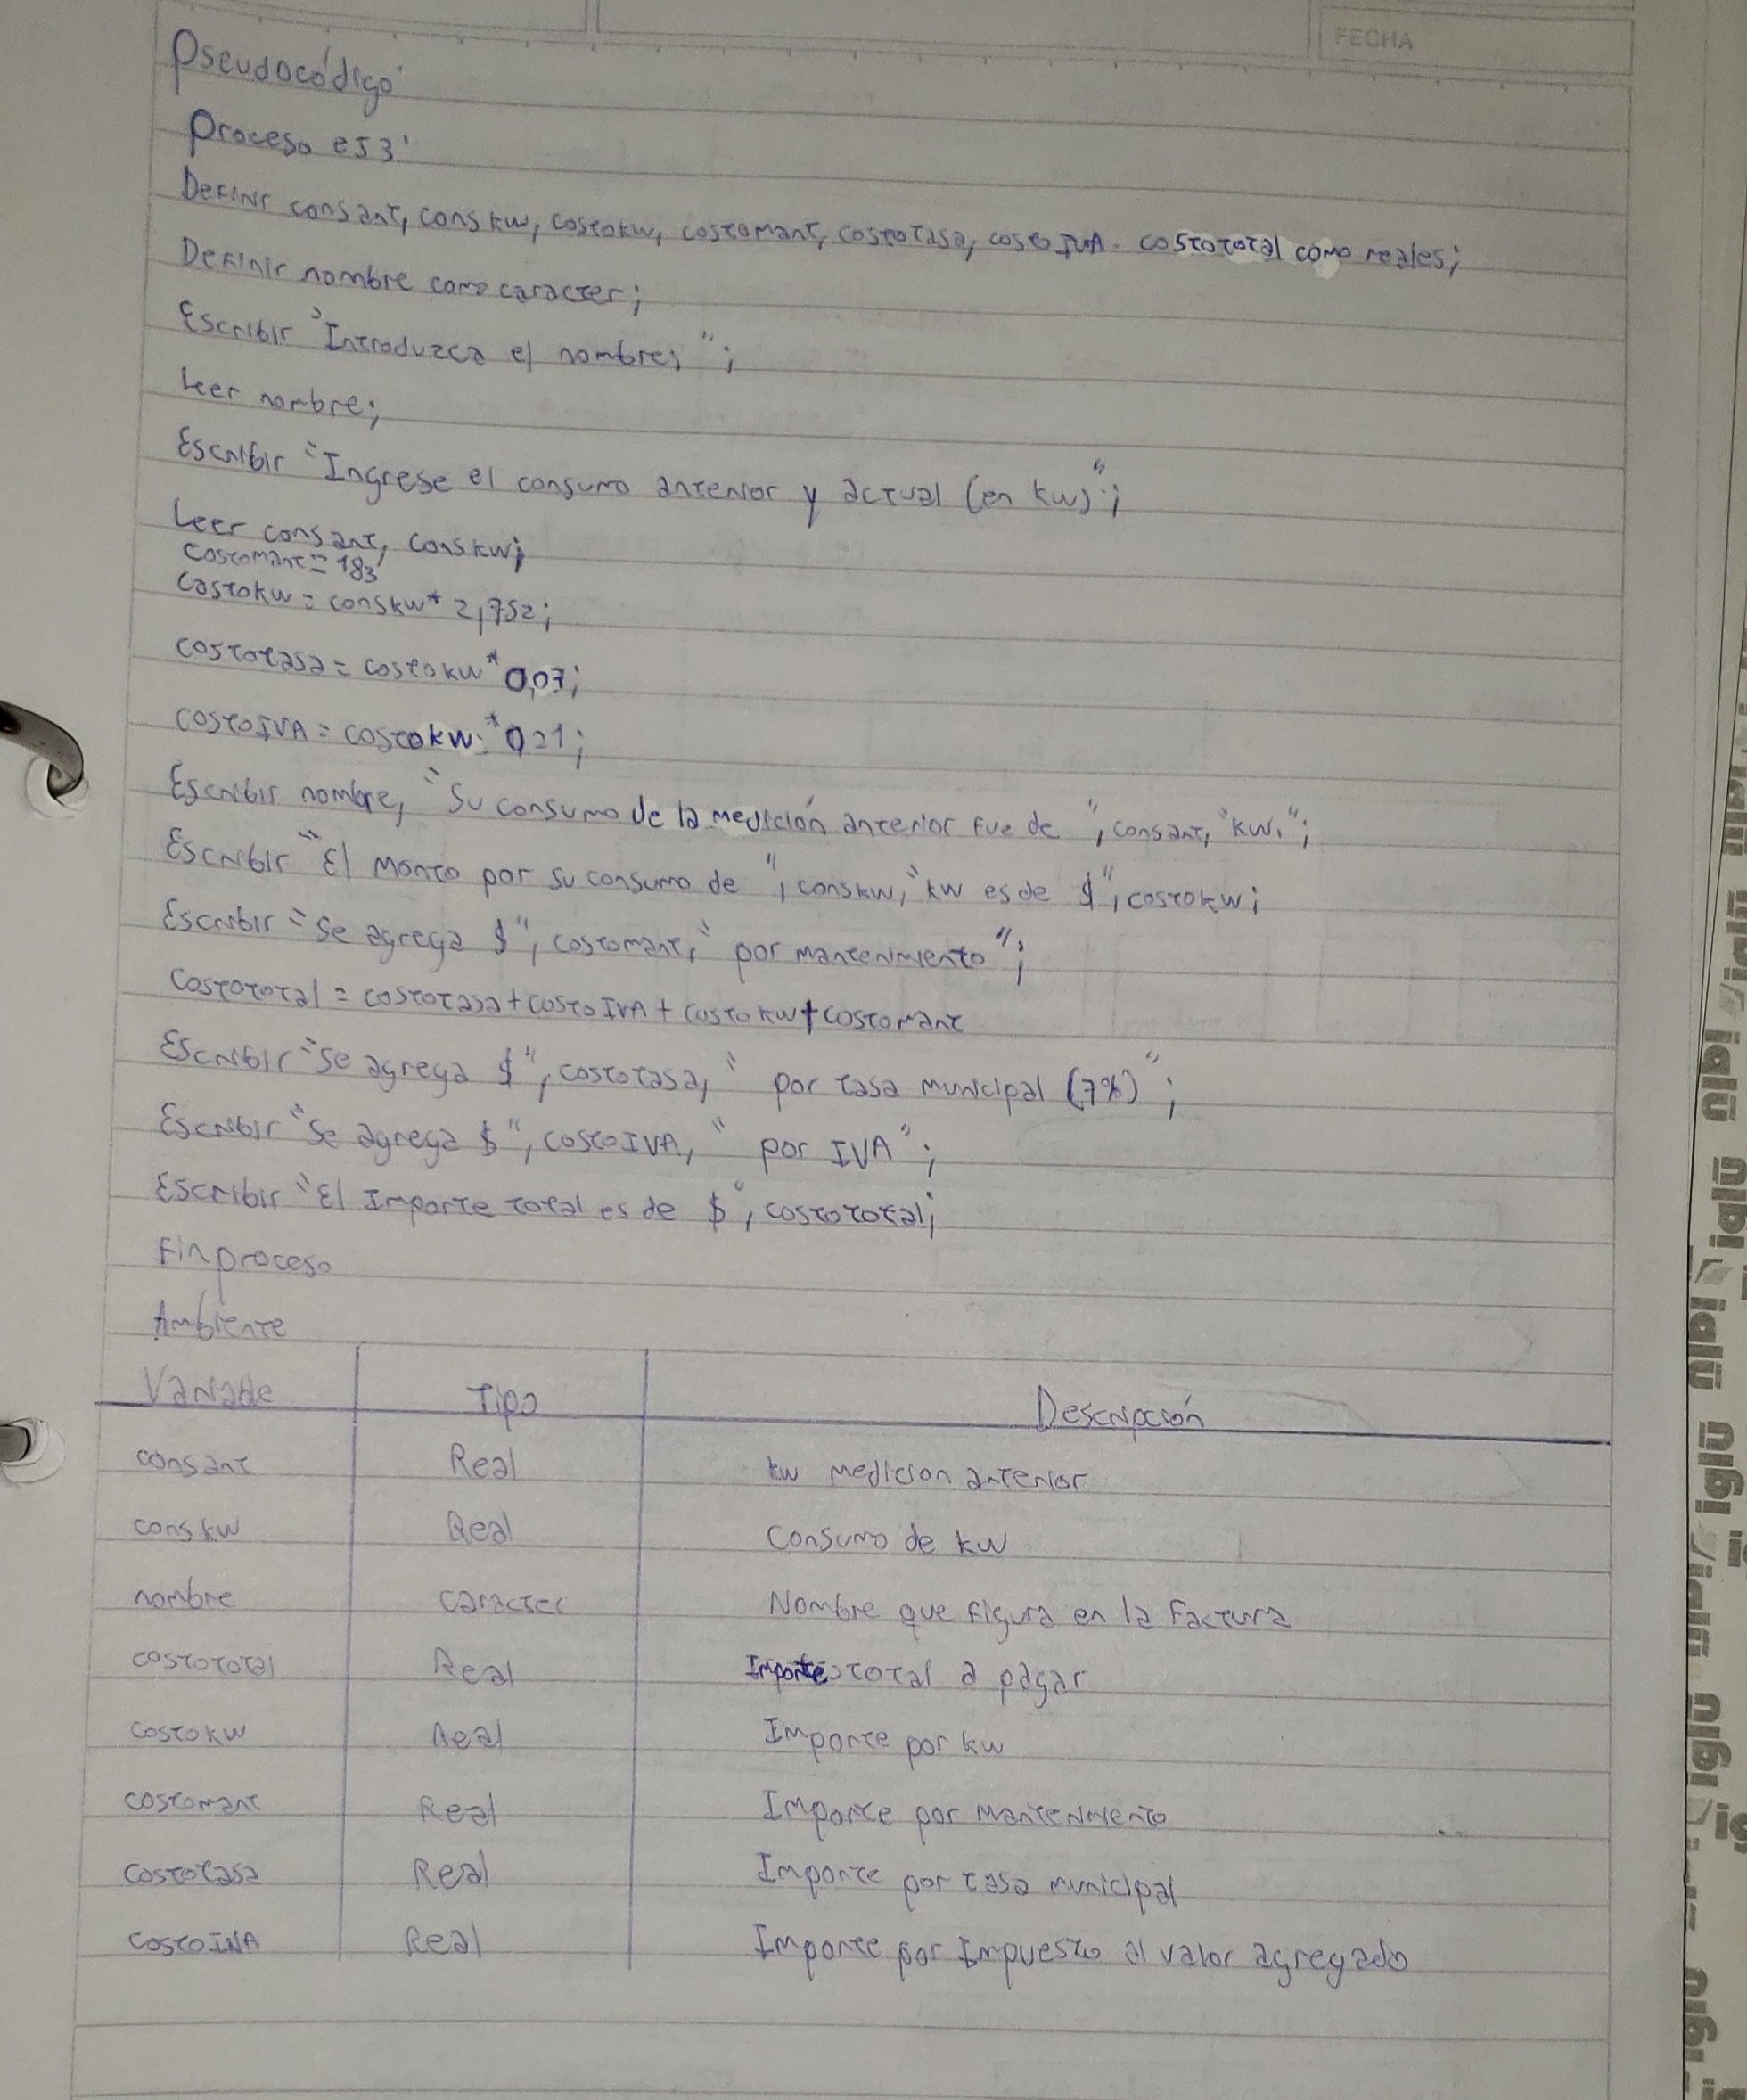 FECHA
Pseudocódigo
Proceso ej3
Definir consant, conskw, costokw, costomant, costotasa, costoIVA. costototal como reales;
Definir nombre como caracter;
Escribir "Introduzca el nombre; ";
Leer nombre;
Escribir "Ingrese el consumo anterior y actual (en kw)";
Leer consant, conskw;
costomant = 183
costokw = conskw * 2,752;
costotasa = costokw * 0,07;
costoIVA = costokw * 0,21;
Escribir nombre, "Su consumo de la medición anterior fue de ", consant, "kw.";
Escribir "El monto por su consumo de ", conskw, "kw es de $", costokw;
Escribir "Se agrega $", costomant, " por mantenimiento";
Costototal = costotasa + costoIVA + costokw + costomant
Escribir "Se agrega $", costotasa, " por tasa municipal (7%)";
Escribir "Se agrega $", costoIVA, " por IVA";
Escribir "El Importe total es de $", costototal;
Finproceso
Ambiente
Variable Tipo Descripción
consant Real kw medicion anterior
conskw Real Consumo de kw
nombre caracter Nombre que figura en la factura
costototal Real Importe total a pagar
costokw Real Importe por kw
costomant Real Importe por mantenimiento
costotasa Real Importe por tasa municipal
costoIVA Real Importe por Impuesto al valor agregado
iglū
iglū
iglū
iglū